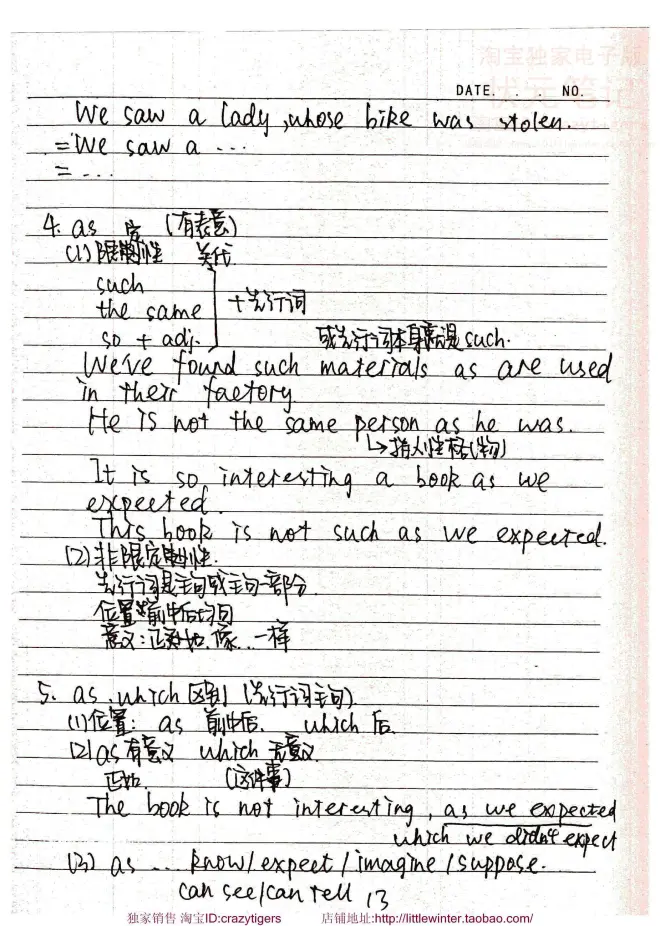 淘宝独家电子版
状元笔记
DATE. . . NO.
We saw a lady, whose bike was stolen.
= We saw a ...
= ...
4. as 定 (有表意)
(1) 限制性 关代
such
the same
so + adj.
+先行词
或先行词本身就是such.
We've found such materials as are used
in their factory.
He is not the same person as he was.
↳指人性格(物)
It is so interesting a book as we
expected.
This book is not such as we expected.
(2) 非限定制性.
先行词是主句或主句一部分.
位置:前中后均可
意义:正如.像...一样
5. as, which区别 (先行词主句).
(1) 位置: as 前中后. which 后.
(2) as有意义 which 无意义.
正如. (这件事)
The book is not interesting, as we expected
which we didn't expect
(3) as ... know/expect/imagine/suppose.
can see/can tell 13
独家销售 淘宝ID:crazytigers 店铺地址:http://littlewinter.taobao.com/